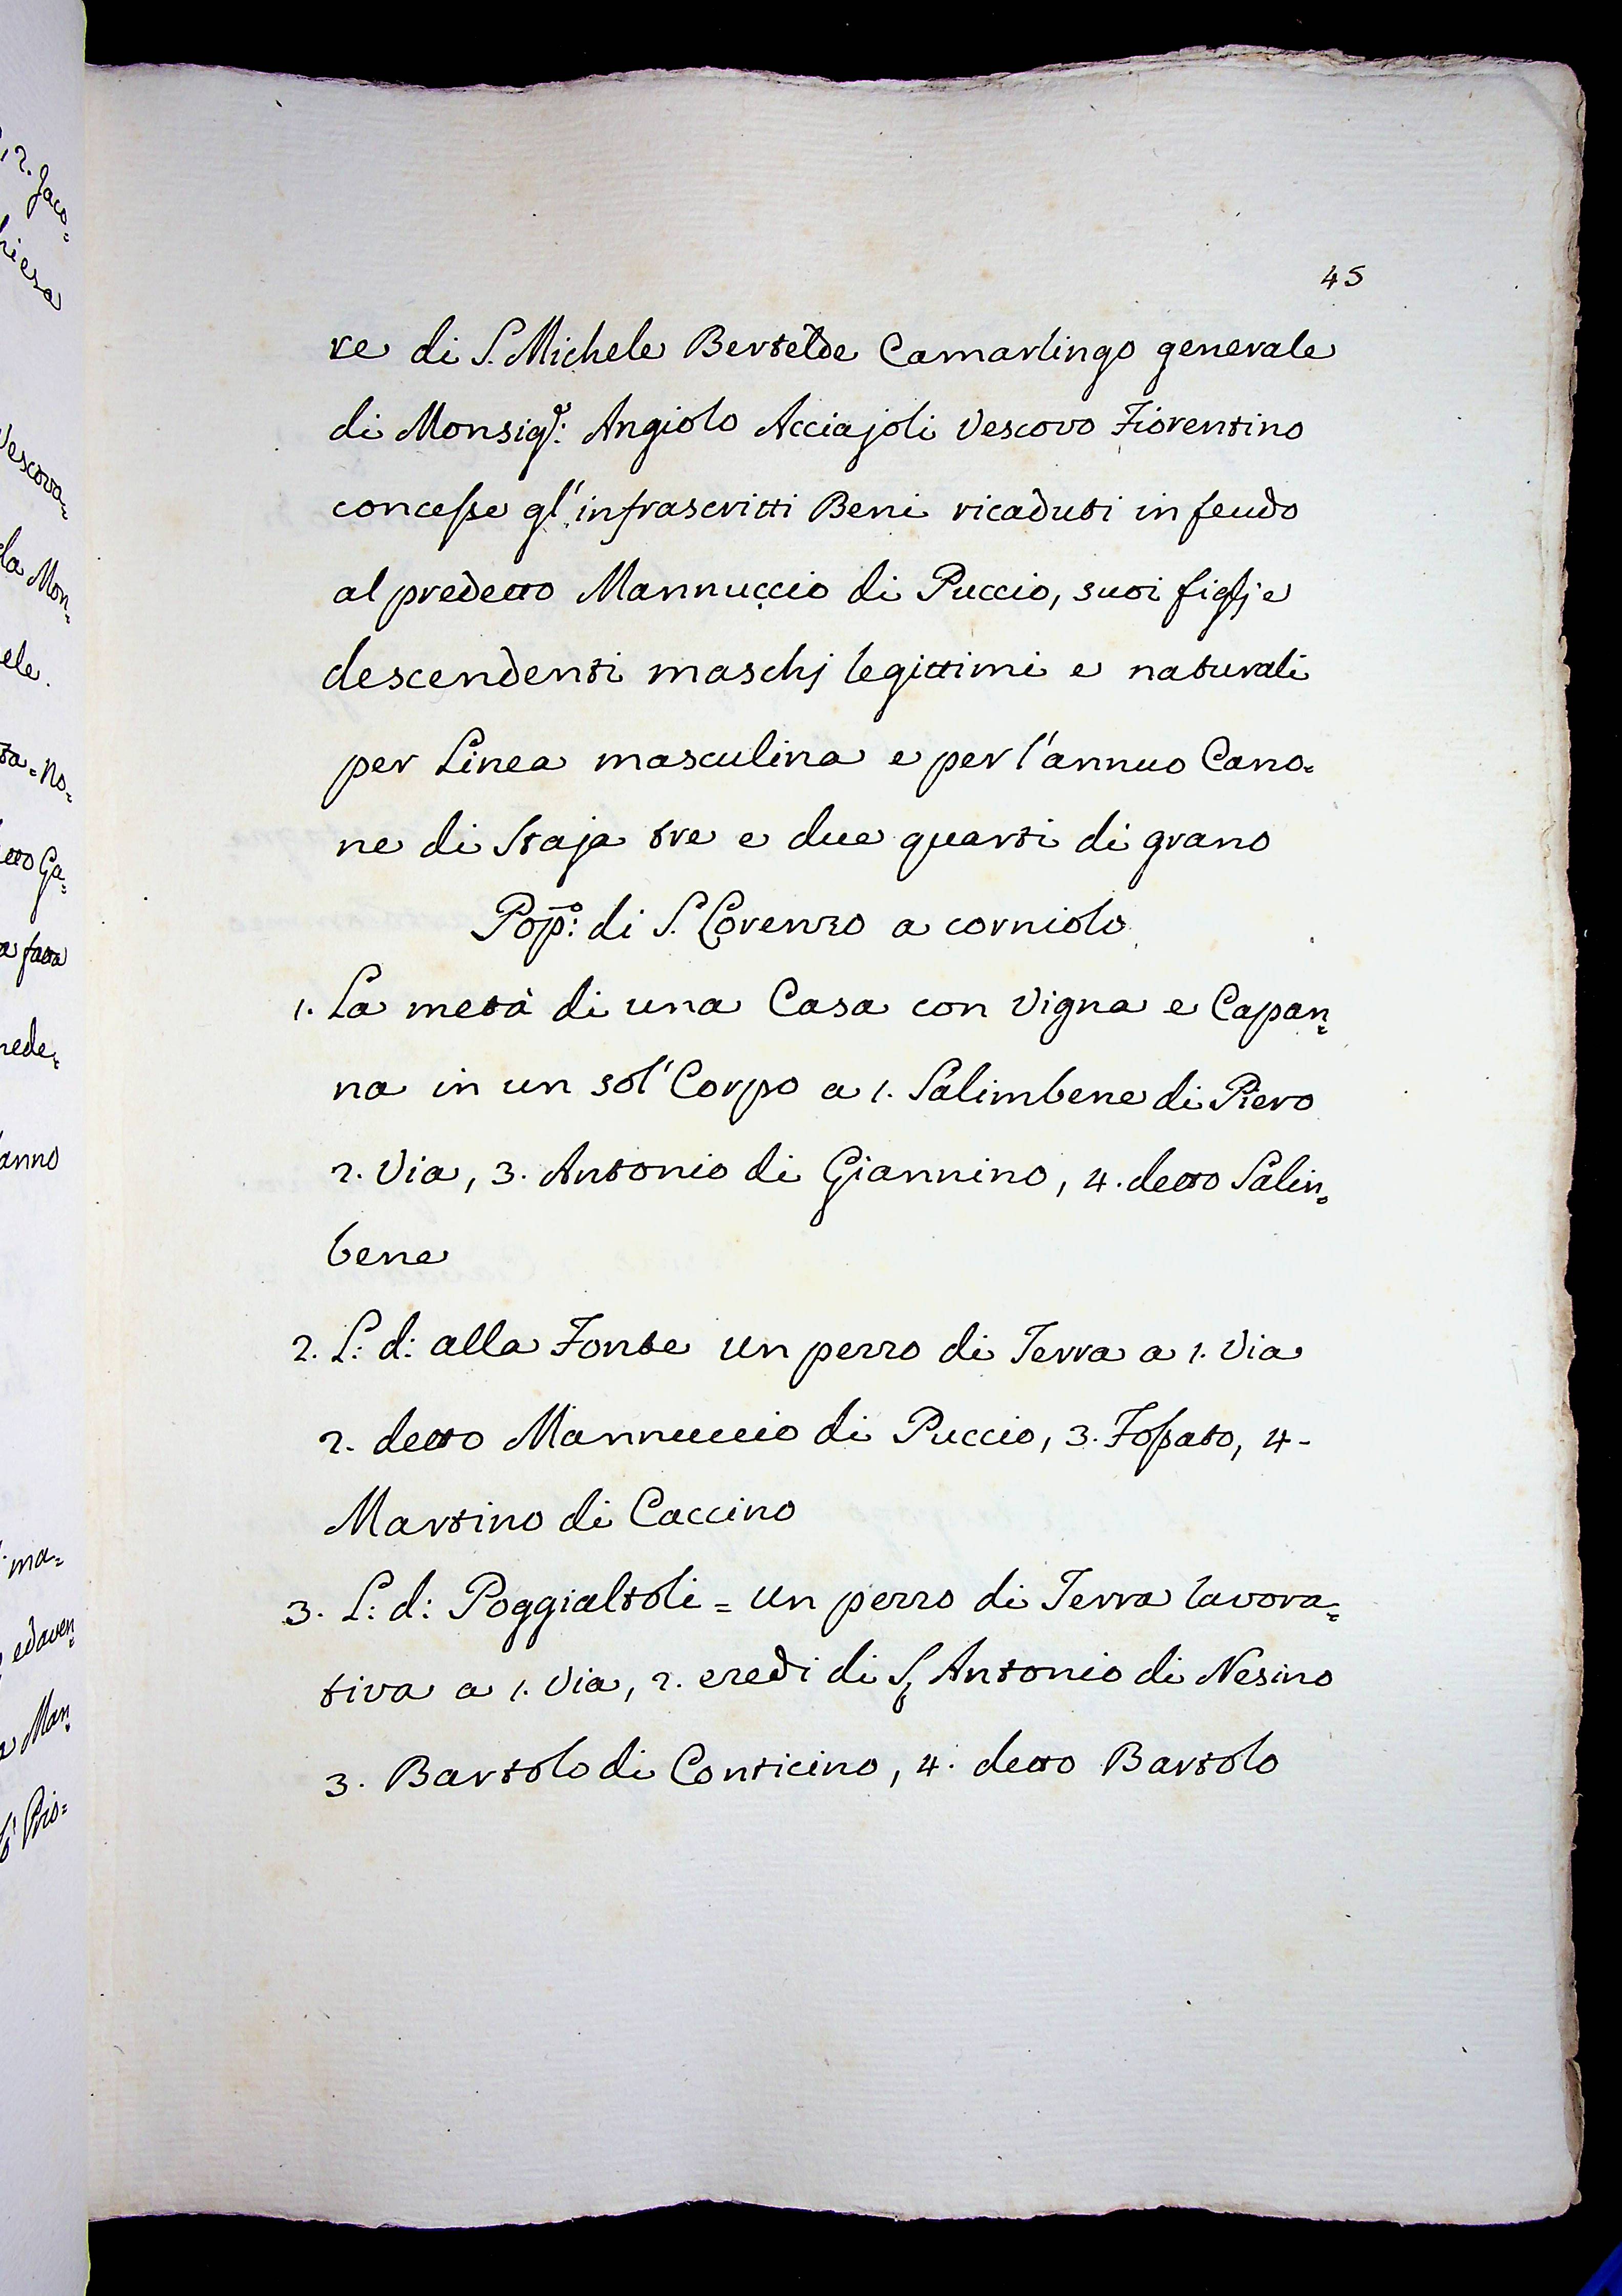 45
re di S. Michele Bertelde Camarlingo generale
di Monsig.r: Angiolo Acciajoli Vescovo Fiorentino
concesse gl'infrascritti Beni ricaduti in feudo
al predetto Mannuccio di Puccio, suoi figlj e
descendenti maschj legittimi e naturali
per Linea masculina e per l'annuo Cano=
ne di Staja tre e due quarti di grano
Pop:o di S. Lorenzo a corniolo
1. La metà di una Casa con Vigna e Capan=
na in un sol' Corpo a 1. Salimbene di Piero
2. Via, 3. Antonio di Giannino, 4. detto Salim=
bene
2. L: d: alla Fonte un pezzo di Terra a 1. Via
2. detto Mannuccio di Puccio, 3. Fossato, 4.
Martino di Caccino
3. L: d: Poggialtoli = un pezzo di Terra lavora=
tiva a 1. Via, 2. eredi di S. Antonio di Nesino
3. Bartolo di Conticino, 4. detto Bartolo